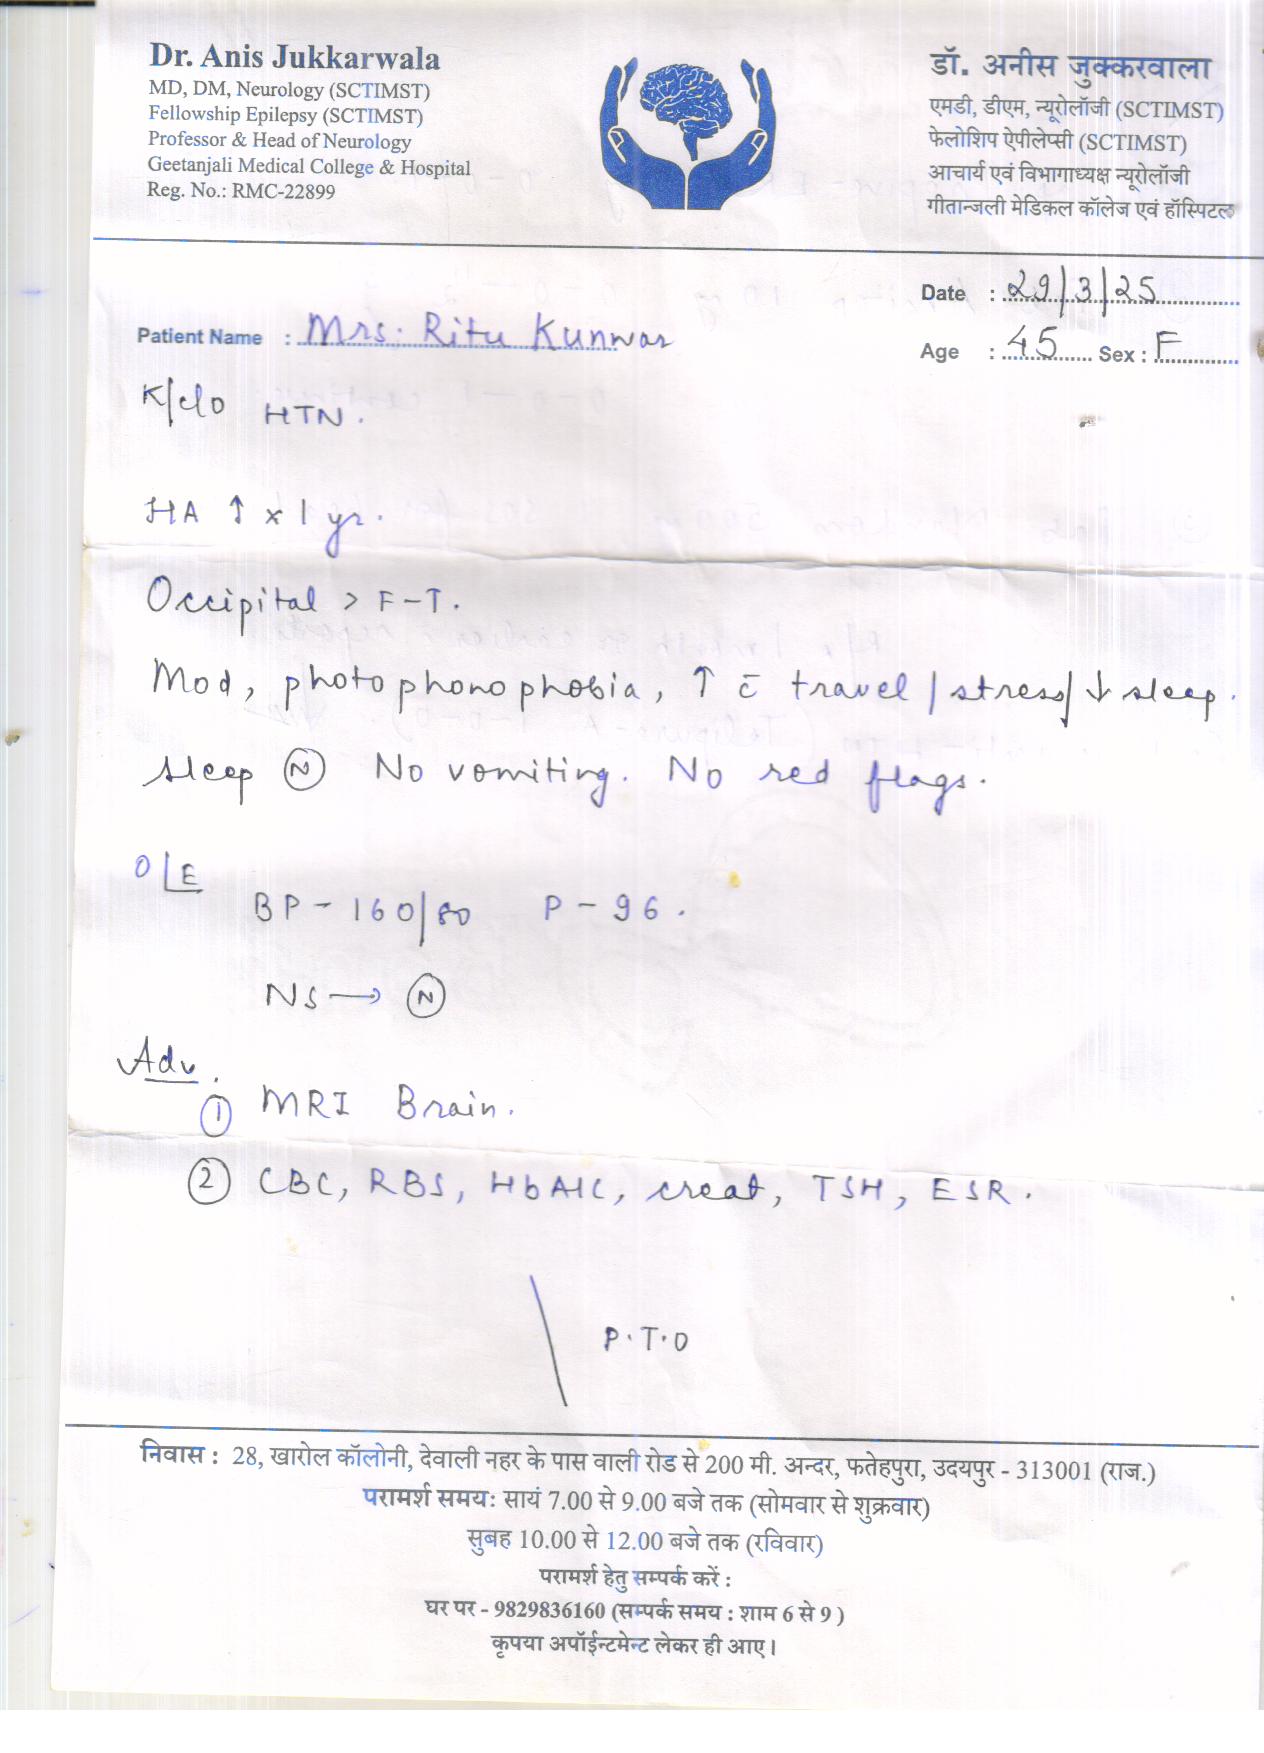 Dr. Anis Jukkarwala
MD, DM, Neurology (SCTIMST)
Fellowship Epilepsy (SCTIMST)
Professor & Head of Neurology
Geetanjali Medical College & Hospital
Reg. No.: RMC-22899
डॉ. अनीस जुक्करवाला
एमडी, डीएम, न्यूरोलॉजी (SCTIMST)
फेलोशिप ऐपीलेप्सी (SCTIMST)
आचार्य एवं विभागाध्यक्ष न्यूरोलॉजी
गीतान्जली मेडिकल कॉलेज एवं हॉस्पिटल
Date : 29/3/25
Patient Name : Mrs. Ritu Kunwar
Age : 45 Sex : F
K/c/o HTN.
HA ↑ x 1 yr.
Occipital > F-T.
Mod, photophonophobia, ↑ c̄ travel / stress / ↓ sleep.
sleep Ⓝ No vomiting. No red flags.
O/E
BP - 160/80 P - 96.
NS → Ⓝ
Adv.
① MRI Brain.
② CBC, RBS, HbA1C, creat, TSH, ESR.
P.T.O
निवास : 28, खारोल कॉलोनी, देवाली नहर के पास वाली रोड से 200 मी. अन्दर, फतेहपुरा, उदयपुर - 313001 (राज.)
परामर्श समय: सायं 7.00 से 9.00 बजे तक (सोमवार से शुक्रवार)
सुबह 10.00 से 12.00 बजे तक (रविवार)
परामर्श हेतु सम्पर्क करें :
घर पर - 9829836160 (सम्पर्क समय : शाम 6 से 9 )
कृपया अपॉईन्टमेन्ट लेकर ही आए।